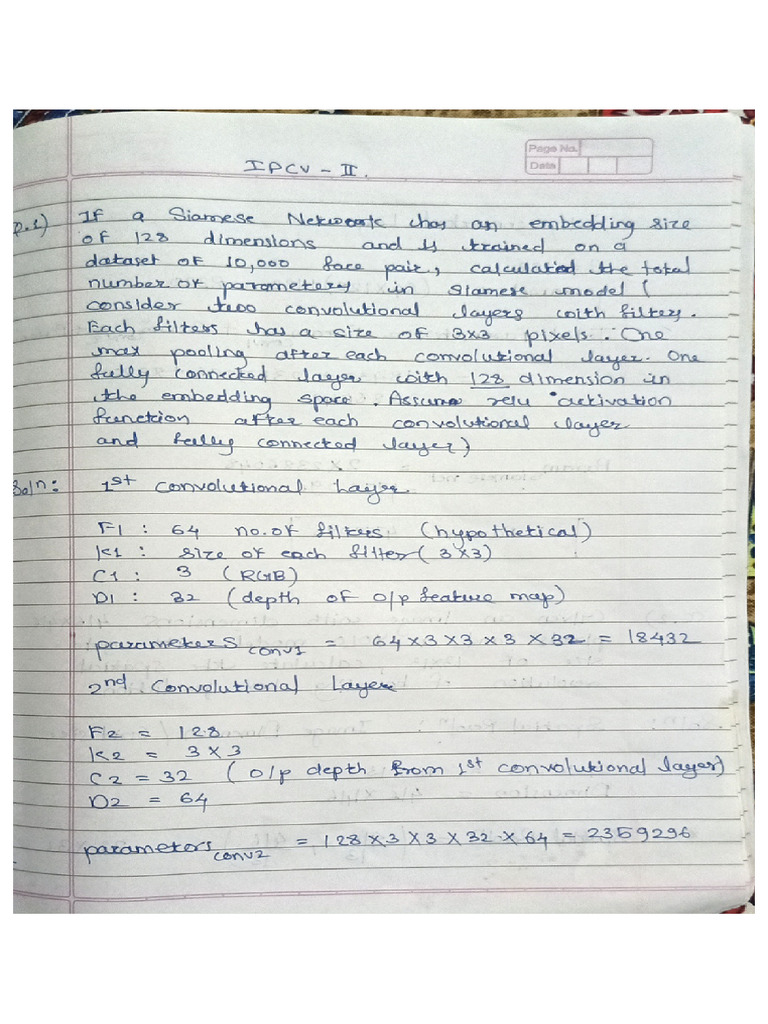 Page No.
Date
IPCV - II.
Q.1) If a Siamese Network has an embedding size
of 128 dimensions and is trained on a
dataset of 10,000 face pair, calculated the total
number of parameters in siamese model (
consider two convolutional layers with filters.
Each filters has a size of 3x3 pixels. One
max pooling after each convolutional layer. One
fully connected layer with 128 dimension in
the embedding space. Assume relu activation
function after each convolutional layer
and fully connected layer)
Soln: 1st convolutional Layer.
F1 : 64 no. of filters (hypothetical)
K1 : size of each filter (3x3)
C1 : 3 (RGB)
D1 : 32 (depth of o/p feature map)
parameters conv1 = 64 x 3 x 3 x 3 x 32 = 18432
2nd Convolutional Layer
F2 = 128
K2 = 3 x 3
C2 = 32 (o/p depth from 1st convolutional layer)
D2 = 64
parameters conv2 = 128 x 3 x 3 x 32 x 64 = 2359296